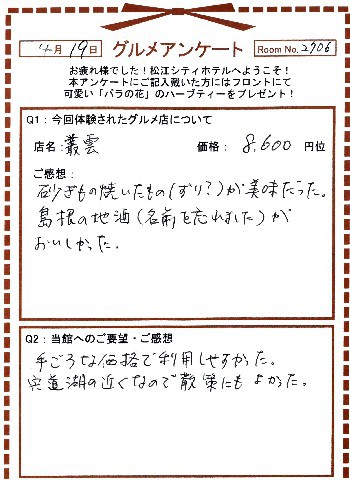 4月19日 グルメアンケート Room No. 2706
お疲れ様でした！松江シティホテルへようこそ！
本アンケートにご記入戴いた方にはフロントにて
可愛い「バラの花」のハーブティーをプレゼント！
Q1：今回体験されたグルメ店について
店名：叢雲 価格： 8,600 円位
ご感想：
砂ぎもの焼いたもの(ずり?)が美味だった。
島根の地酒(名前を忘れました)が
おいしかった．
Q2：当館へのご要望・ご感想
手ごろな価格で利用しやすかった。
宍道湖の近くなので散策にもよかった。